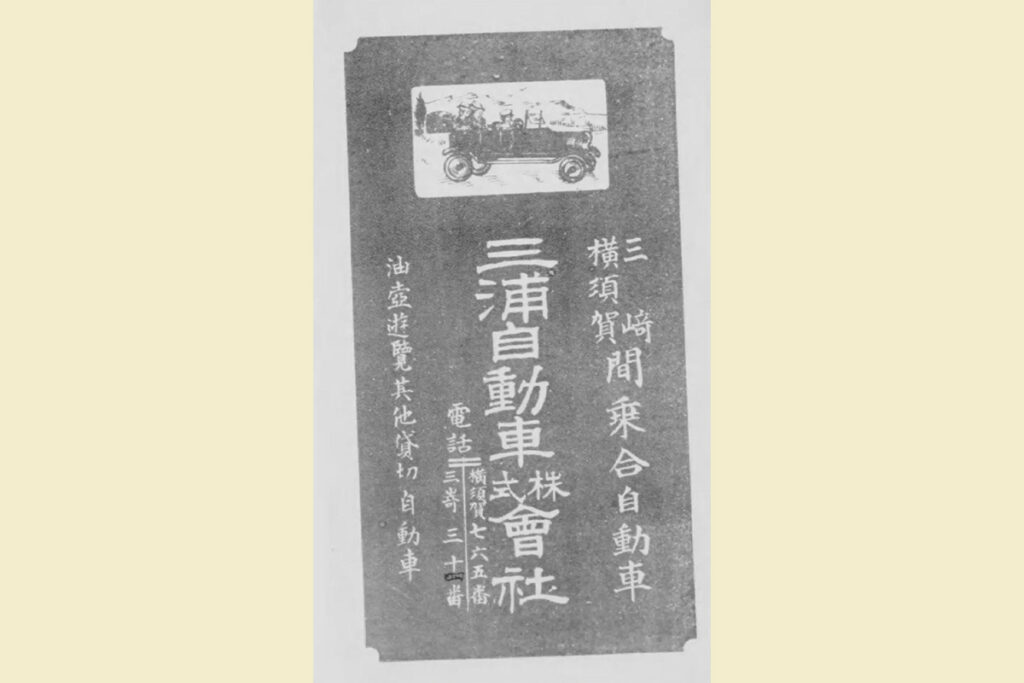 三﨑
橫須賀
間乗合自動車
三浦自動車株式會社
電話
橫須賀七六五番
三嵜三十番
油壺遊覽其他貸切自動車